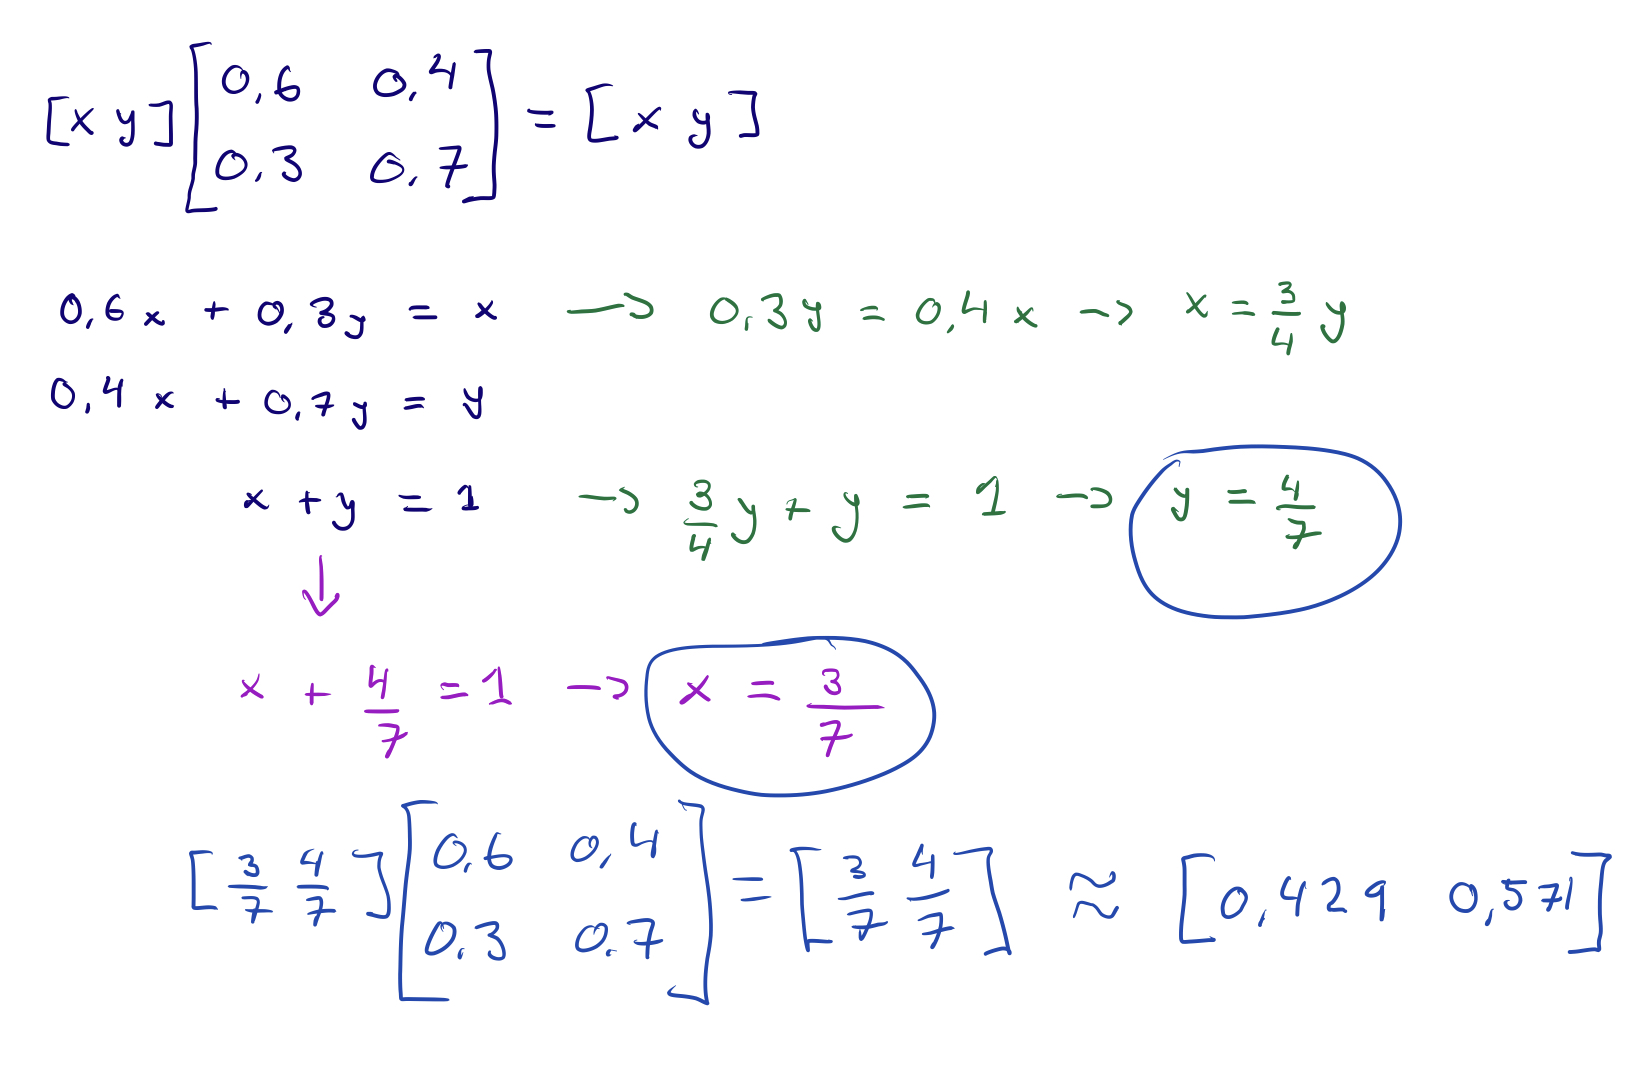 [x y] [0,6 0,4
0,3 0,7] = [x y]
0,6x + 0,3y = x → 0,3y = 0,4x → x = 3/4 y
0,4x + 0,7y = y
x + y = 1 → 3/4 y + y = 1 → y = 4/7
↓
x + 4/7 = 1 → x = 3/7
[3/7 4/7] [0,6 0,4
0,3 0,7] = [3/7 4/7] ≈ [0,429 0,571]